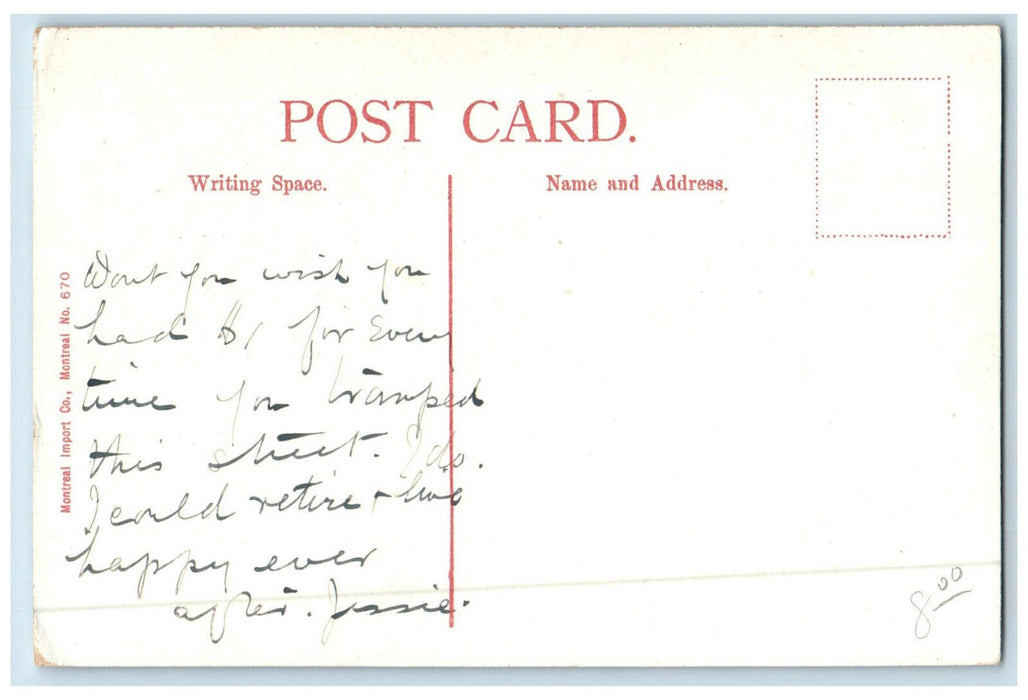 POST CARD.
Writing Space.
Name and Address.
Montreal Import Co., Montreal No. 670
Wont you wish you
had $1 for Every
time you tramped
this street. I do.
I could retire & live
happy ever
after. Jessie.
8.00